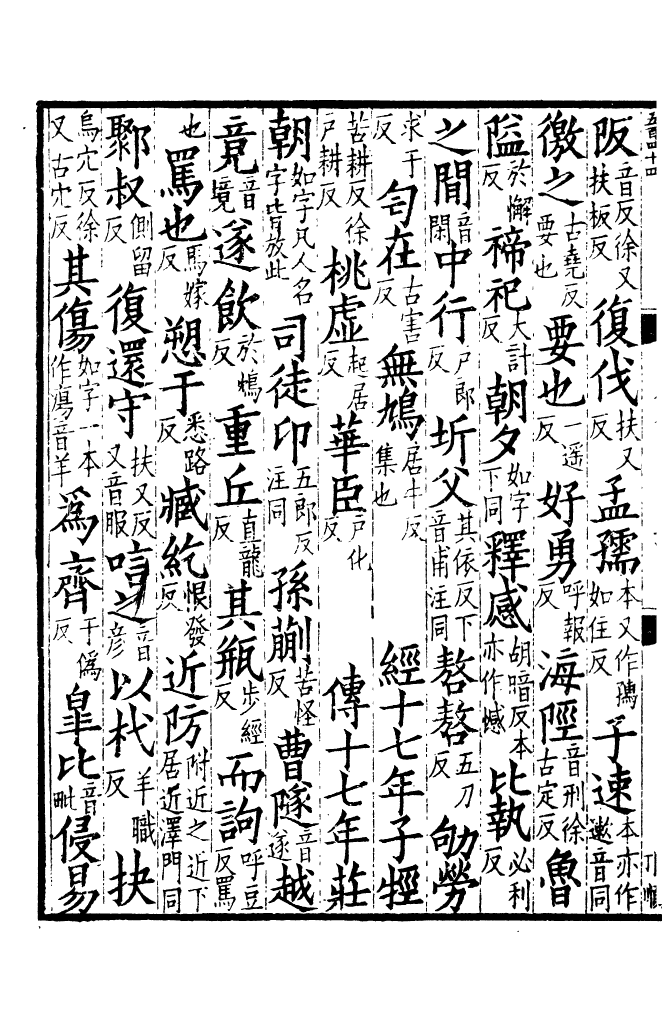 阪音反徐又扶板反復伐扶又反孟孺本又作𡦗如住反子速本亦作遬音同
徼之古堯反要也要也一遥反好勇呼報反海陘音刑徐古定反魯
隘於懈反禘祀大計反朝夕如字下同釋感胡暗反本亦作憾比執必利反
之間音閑中行戸郎反圻父其依反下音甫注同嗸嗸五刀反劬勞
求于反匄在古害反無鳩居牛反集也經十七年子牼
苦耕反徐戸耕反桃虚起居反華臣戸化反傳十七年莊
朝如字凡人名字皆放此司徒卬五郎反注同孫蒯苦怪反曹隧音遂越
竟音境遂飲於鴆反重丘直龍反其瓶步經反而訽呼豆反罵
也罵也馬嫁反愬于悉路反臧紇恨發反近防附近之近下居近澤門同
郰叔側留反復還守扶又反又音服唁之音彦以杙羊職反抉
烏穴反徐又古穴反其傷如字一本作瘍音羊爲齊于僞反皐比音毗侵易